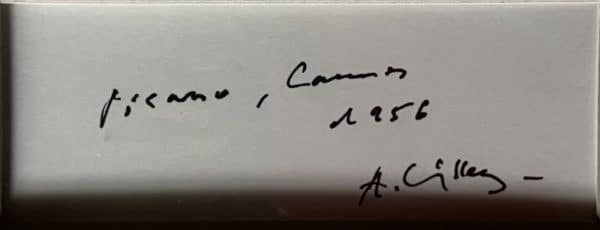 Picasso, Cannes
1956
A. Villers –